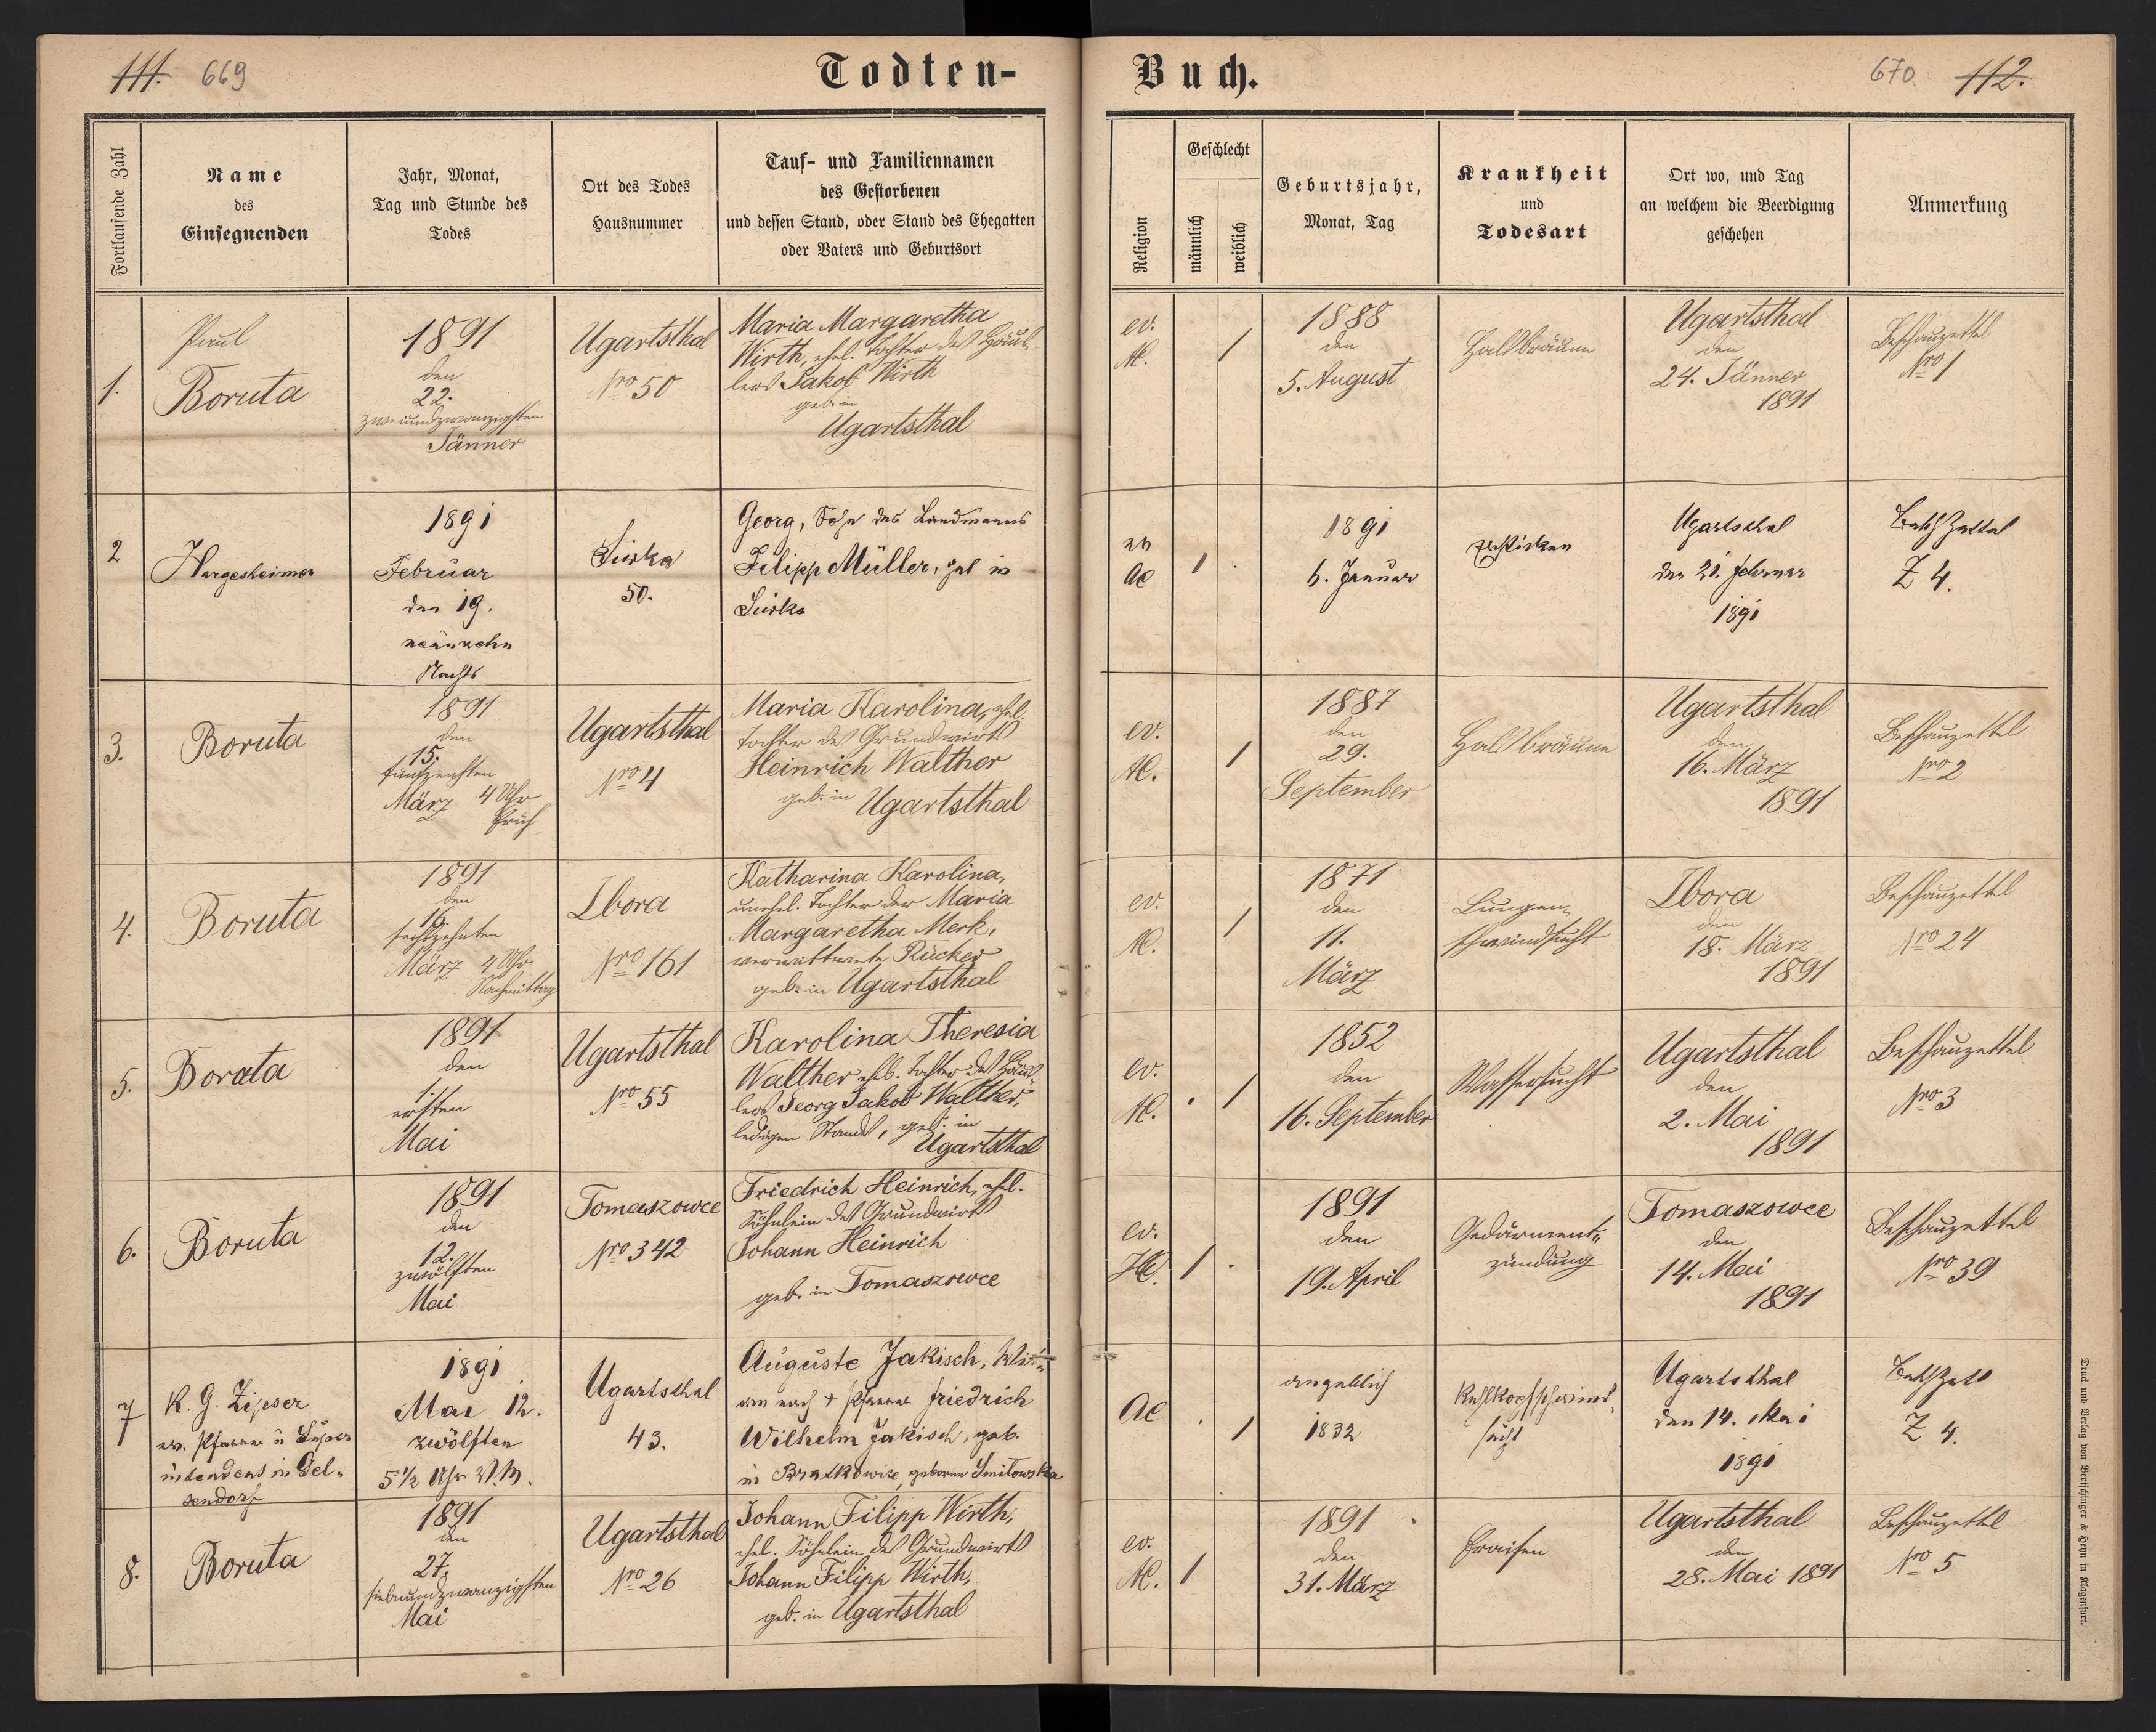 111. 669
Todten-
Buch.
670 112.
Fortlaufende Zahl
Name
des
Einsegnenden
Jahr, Monat,
Tag und Stunde des
Todes
Ort des Todes
Hausnummer
Tauf- und Familiennamen
des Gestorbenen
und dessen Stand, oder Stand des Ehegatten
oder Vaters und Geburtsort
Religion
Geschlecht
männlich
weiblich
Geburtsjahr,
Monat, Tag
Krankheit
und
Todesart
Ort wo, und Tag
an welchem die Beerdigung
geschehen
Anmerkung
1.
Paul
Boruta
1891
den
22.
zweiundzwanzigsten
Jänner
Ugartsthal
Nro 50
Maria Margaretha
Wirth, ehel. Tochter des Häus-
lers Jakob Wirth
geb. in
Ugartsthal
ev.
/
1888
den
5. August
Halsbräune
Ugartsthal
den
24. Jänner
1891
Beschauzettel
Nro 1
2
Hargesheimer
1891
Februar
den 19.
neunzehn
Nachts
50.
Georg, Sohn des Landmanns
Filipp Müller, geb in
1
1891
6. Januar
Ersticken
Ugartsthal
den 21. Februar
1891
Z 4.
3.
Boruta
1891
den
15.
fünfzehnten
März 4 Uhr
früh
Ugartsthal
Nro 4
Maria Karolina, ehel.
Tochter des Grundwirts
Heinrich Walther
geb. in Ugartsthal
ev.
/
1887
den
29.
September
Halsbräune
Ugartsthal
den
16. März
1891
Beschauzettel
Nro 2
4.
Boruta
1891
den
16.
sechszehnten
März 4 Uhr
Nachmittag
Zbora
Nro 161
Katharina Karolina,
unehel. Tochter der Maria
Margaretha Merk,
verwittwete Rücker
geb. in Ugartsthal
ev.
/
1871
den
11.
März
Lungen-
schwindsucht
Zbora
den
18. März
1891
Beschauzettel
Nro 24
5.
Boruta
1891
den
1.
ersten
Mai
Ugartsthal
Nro 55
Karolina Theresia
Walther ehel. Tochter des Häus-
lers Georg Jakob Walther,
ledigen Standes, geb. in
Ugartsthal
ev.
/
1852
den
16. September
Wassersucht
Ugartsthal
den
2. Mai
1891
Beschauzettel
Nro 3
6.
Boruta
1891
den
12.
zwölften
Mai
Tomaszowce
Nro 342
Friedrich Heinrich, ehel.
Söhnlein des Grundwirts
Johann Heinrich
geb. in Tomaszowce
ev.
1
1891
den
19. April
Gedärment-
zündung
Tomaszowce
den
14. Mai
1891
Beschauzettel
Nro 39
7
K. G. Zipser
ev. Pfarrer u Super
intendent in Gel-
sendorf
1891
Mai 12.
zwölften
5 1/2 Uhr V.M.
Ugartsthal
43.
Auguste Jakisch, Wit-
we nach + Pfarrer Friedrich
Wilhelm Jakisch, geb.
in Bratkowice, geborene Smitowska
/
angeblich
1832
Kehlkopfschwind-
sucht
Ugartsthal
den 14. Mai
1891
Z 4.
8.
Boruta
1891
den
27.
siebenundzwanzigsten
Mai
Ugartsthal
Nro 26
Johann Filipp Wirth,
ehel. Söhnlein des Grundwirts
Johann Filipp Wirth,
geb. in Ugartsthal
ev.
1
1891
den
31. März
Fraisen
Ugartsthal
den
28. Mai 1891
Beschauzettel
Nro 5
Druck und Verlag von Bertschinger & Heyn in Klagenfurt.